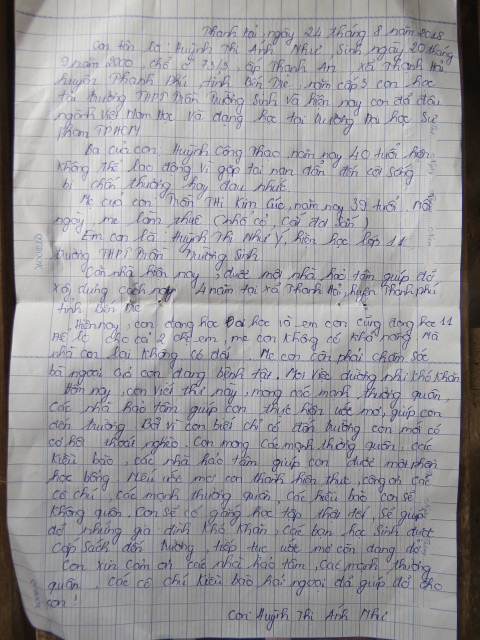 Thạnh Hải, ngày 24 tháng 8 năm 2018
Con tên là: Huỳnh Thị Anh Như, sinh ngày 20 tháng
9 năm 2000, chỗ ở 73/3, ấp Thạnh An xã Thạnh Hải,
huyện Thạnh Phú, tỉnh Bến Tre, năm cấp 3 con học
tại trường THPT Trần Trường Sinh và hiện nay con đã đậu
ngành Việt Nam Học và đang học tại trường Đại học Sư
phạm TPHCM
Ba của con: Huỳnh Công Thao, năm nay 40 tuổi hiện
không thể lao động vì gặp tai nạn dẫn đến cột sống
bị chấn thương hay đau nhức.
Mẹ của con: Trần Thị Kim Cúc, năm nay 39 tuổi. Mỗi
ngày mẹ làm thuê (nhổ cỏ, cắt đọt sắn)
Em con là: Huỳnh Thị Như Ý, hiện học lớp 11
trường THPT Trần Trường Sinh.
Căn nhà hiện nay, được một nhà hảo tâm giúp đỡ
xây dựng cách nay 4 năm tại xã Thạnh Hải, huyện Thạnh Phú
tỉnh Bến Tre
Hiện nay, con đang học Đại học và em con cũng đang học 11
để lo cho cả 2 chị em, mẹ con không có khả năng. Mà
nhà con lại không có đất. Mẹ con còn phải chăm sóc
bà ngoại của con đang bệnh tật. Mọi việc dường như khó khăn
Hôm nay, con viết thư này, mong các mạnh thường quân,
các nhà hảo tâm giúp con thực hiện ước mơ, giúp con
đến trường. Bởi vì con biết chỉ có đến trường con mới có
cơ hội thoát nghèo. Con mong các mạnh thường quân, các
kiều bào, các nhà hảo tâm giúp con được một phần
học bổng. Nếu ước mơ con thành hiện thực, công ơn các
cô chú, các mạnh thường quân, các kiều bào con sẽ
không quên. Con sẽ cố gắng học tập thật tốt, sẽ giúp
đỡ những gia đình khó khăn, các bạn học sinh được
cắp sách đến trường, tiếp tục ước mơ còn dang dở.
Con xin cảm ơn các nhà hảo tâm, các mạnh thường
quân, các cô chú kiều bào hải ngoại đã giúp đỡ cho
con!
Con: Huỳnh Thị Anh Như